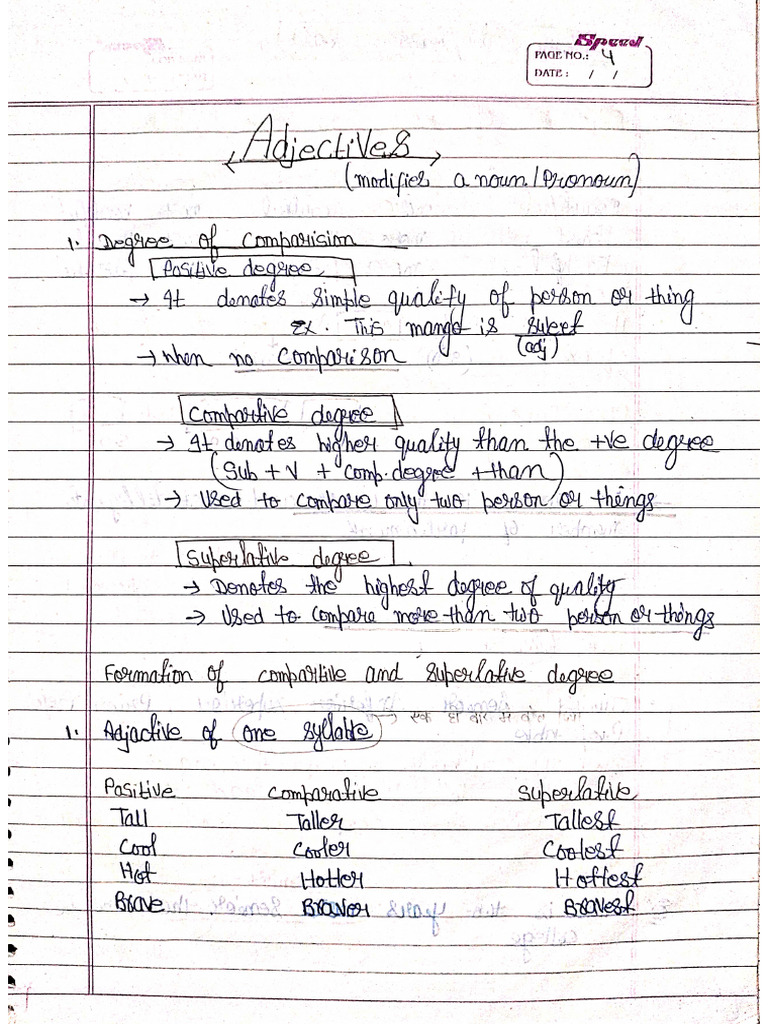 Speed
PAGE NO.: 4
DATE : / /
Adjectives
(modifies a noun/Pronoun)
1. Degree of comparision
Positive degree
→ It denotes simple quality of person or thing
Ex. This mango is sweet
(adj)
→ When no comparison
Compartive degree
→ It denotes higher quality than the +ve degree
(Sub + V + comp. degree + than)
→ Used to compare only two person or things
Superlative degree
→ Denotes the highest degree of quality
→ Used to compare more than two person or things
Formation of compartive and superlative degree
1. Adjactive of one syllable → एक ही बार में बोल
Positive Comparative Superlative
Tall Taller Tallest
Cool Cooler Coolest
Hot Hotter Hottest
Brave Braver Bravest